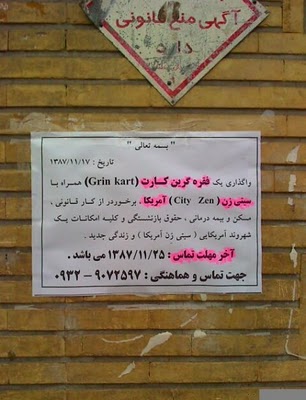 آگهی منع قانونی
دارد
" بسمه تعالی "
تاریخ : ۱۳۸۷/۱۱/۱۷
واگذاری یک فقره گرین کـارت (Grin kart) همـراه بـا
سیتی زن (City Zen) آمریکا . برخوردر از کـار قـانونی ،
مسکن و بیمه درمانی ، حقوق بازنشستگی و کلیه امکانـات یـک
شهروند آمریکایی ( سیتی زن آمریکا ) و زندگی جدید .
آخر مهلت تماس : ۱۳۸۷/۱۱/۲۵ می باشد .
جهت تماس و هماهنگی : ۹۰۷۲۵۹۷ – ۰۹۳۲